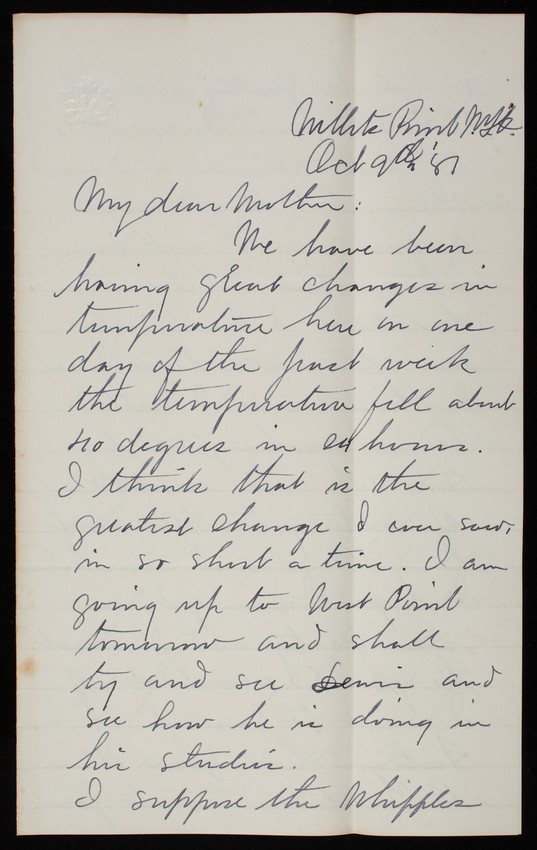 Willets Point N.Y.
Oct 9th '81
My dear Mother:
We have been
having great changes in
temperature here on one
day of the past week
the temperature fell about
40 degrees in 24 hours.
I think that is the
greatest change I ever saw,
in so short a time. I am
going up to West Point
tomorrow and shall
try and see Lewis and
see how he is doing in
his studies.
I suppose the Whipples